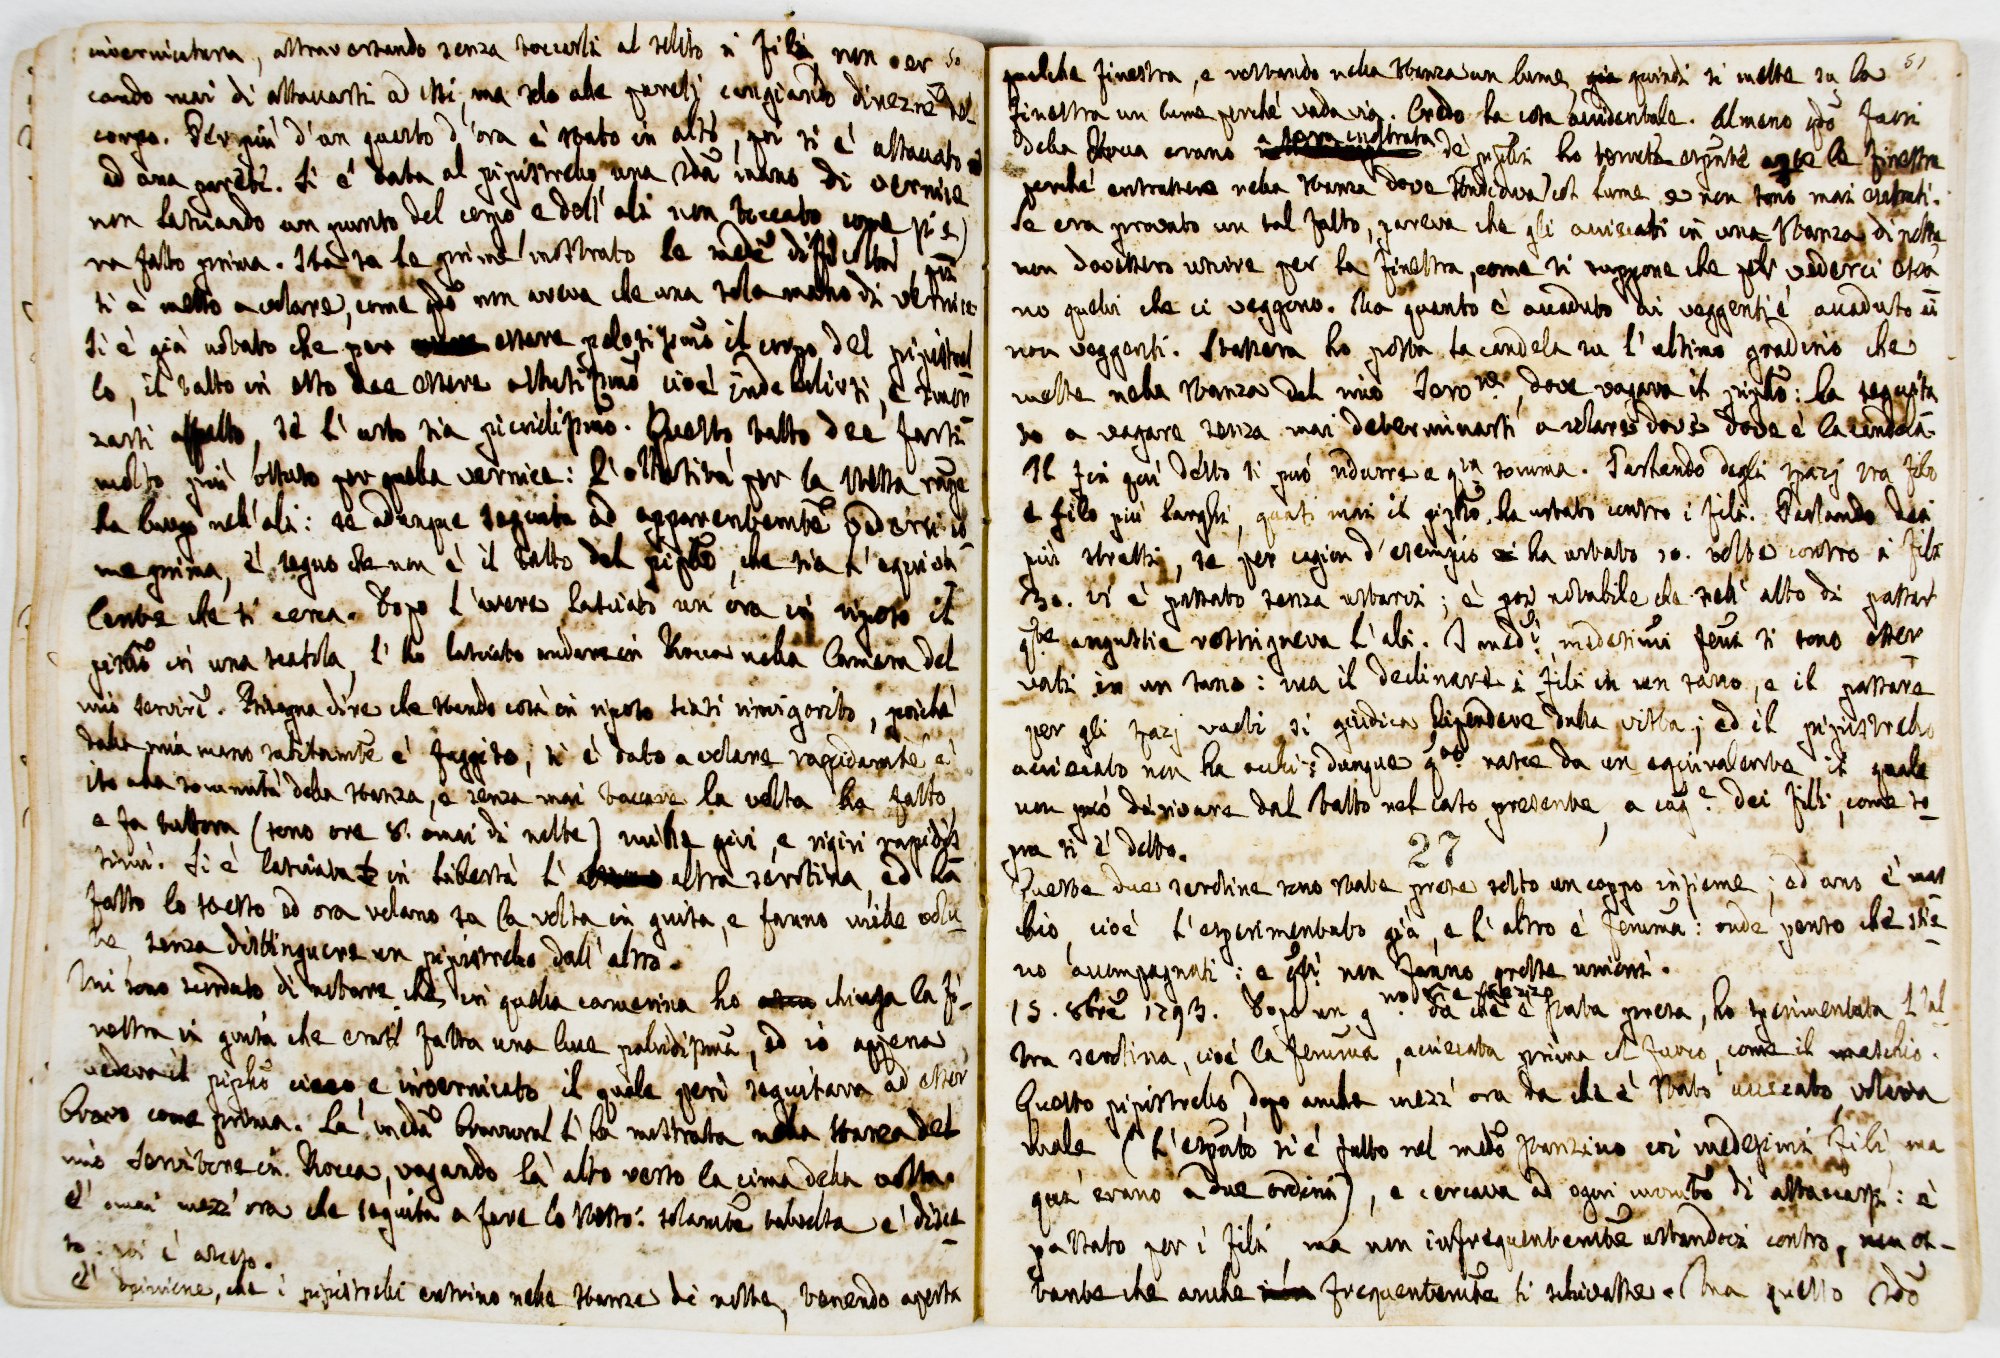 50
inverniciatura, attraversando senza toccarli al solito i fili, non cer
cando mai di attaccarsi ad essi, ma solo alle pareti, cangiando direzne del
corpo. Per più d'un quarto d'ora è stato in alto, poi si è attaccato
ad una parete. Si è data al pipistrello una 2da mano di vernice
non lasciando un punto del corpo e dell'ali non toccato come si e
ra fatto prima. Ha da le prime mostrato le mede difficoltà, più
si è messo a volare, come qdo non aveva che una sola mano di vernice.
Si è già notato che per essere pelosissimo il corpo del pipistrel
lo, il tatto in esso dee essere ottusissimo, cioè indebolirsi, e smor
zarsi affatto, se l'urto sia piccolissimo. Questo tatto dee farsi
molto più ottuso per quella vernice: L'ottusità per la stessa ragne
ha luogo nell'ali: se adunque seguita ad apparentemte vederci co
me prima, è segno che non è il tatto del piplo, che sia l'equiva
lente che si cerca. Dopo l'avere lasciato un'ora in riposo il
piplo in una scatola, l'ho lasciato andare in Rocca nella Camera del
mio servire. Bisogna dire che stando così in riposo siasi rinvigorito, poichè
dalla mia mano subitamte è fuggito, si è dato a volare rapidamte è
ito alla sommità della stanza, e senza mai toccare la volta ha fatto,
e fa tuttora (sono ore 8. omai di notte) mille giri, e rigiri rapidis
simi. Si è lasciata in libertà l' altra serotina, ed ha
fatto lo stesso ed ora volano su la volta in guisa, e fanno mille volu
te, senza distinguere un pipistrello dall'altro.
Mi sono scordato di notare che in quella camerina ho chiusa la fi-
nestra in guisa che erasi fatta una luce pallidissma, ed io appena
vedeva il piplo cieco e inverniciato il quale però seguitava ad esser
bravo come prima. La meda bravura l'ha mostrata nella stanza del
mio Servitore in Rocca, vagando là alto verso la cima della volta.
È omai mezz'ora che séguita a fare lo stesso: solamte talvolta è disce
so: poi è asceso.
È opinione, che i pipistrelli entrino nelle stanze di notte, tenendo aperta
51
qualche finestra, e restando nella stanza un lume, quindi si mette su la
finestra un lume perchè vada via. Credo la cosa accidentale. Almeno qdo fuori
della Rocca erano a sera inoltrata de' piplli ho tenute aperte le finestre
perchè entrassero nella stanza dove col lume e non sono mai entrati.
Se era provato un tal fatto, pareva che gli acciecati in una stanza di notte
non dovessero uscire per la finestra, come si suppone che per vederci esca
no quelli che ci veggono. Ma quanto è accaduto ai veggenti è accaduto ai
non veggenti. Stassera ho posta la candela su l'ultimo gradino che
mette nella stanza del mio Servre, dove vagava il piplo: ha seguita
to a vagare senza mai determinarsi a volare dov'è dove è la candela.
Il fin quì detto si può ridurre a qta somma. Parlando degli spazj tra filo
e filo più larghi, quasi mai il piplo ha urtato contro i fili. Parlando dei
più stretti, se per cagion d'esempio ha urtato 10. volte contro i fili
30. vi è passato senza urtarvi; è poi notabile che nell'atto di passar
qlle angustie restrigneva l'ali. I medi medesimi fenni si sono osser
vati in un sano: ma il declinare i fili in un sano, e il passare
per gli spazj vuoti si giudica dipendere dalla vista; ed il pipistrello
acciecato non ha occhi: dunque qto nasce da un equivalente il quale
non può derivare dal tatto nel caso presente, a cage dei fili, come so
pra si è detto.
27
Queste due serotine sono state prese sotto un coppo insieme; ed uno è mas
chio, cioè l'esperimentato già, e l'altro è femma: onde penso che stie
no accompagnati: e qsti non fanno grosse unioni.
15. 8bre 1793. Dopo un gno e mezzo da che è stata presa, ho sperimentata l'al
tra serotina, cioè la femma, acciecata prima col fuoco, come il maschio.
Questo pipistrello, dopo anche mezz'ora da che è stato acciecato, volava
male (l'esperto si è fatto nel medo stanzino coi medesimi fili, ma
qui erano a due ordini), e cercava ad ogni momto di attaccarsi: è
passato per i fili, ma non infrequentemte urtandoci contro, nono-
stante che anche frequentemte li schivasse. Ma questo 2do